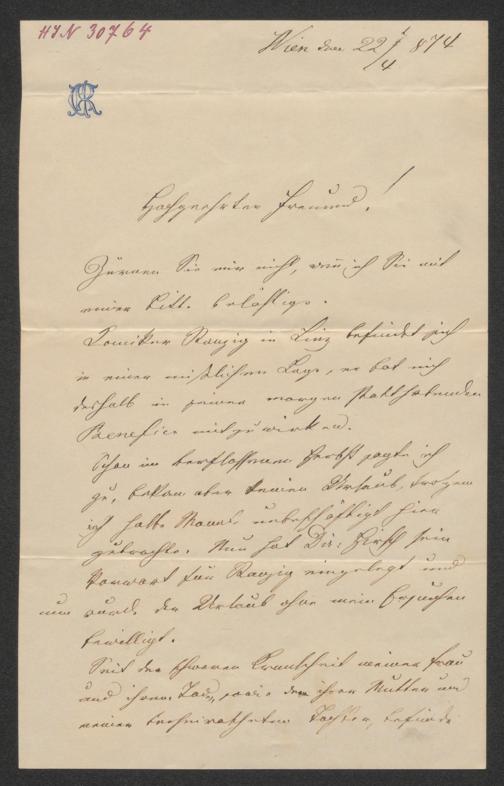 HIN 30764
Wien den 22/4 874
CR
Hochgeehrter Freund!
Zürnen Sie mir nicht, wenn ich Sie mit
einer Bitte belästige.
Komiker Ranzig in Linz befindet sich
in einer mißlichen Lage, er bat mich
deshalb in seiner morgen stattfindenden
Benefice mitzuwirken.
Schon im verflossenen Herbst sagte ich
zu, bekam aber keinen Urlaub, trotzdem
ich halbe Monate unbeschäftigt hier
zubrachte. Nun hat Dir: Hirsch sein
Vorwort für Ranzig eingelegt und
nun wurde der Urlaub ohne mein Ersuchen
bewilligt.
Seit der schweren Krankheit meiner Frau
und ihrem Tode, sowie dem ihrer Mutter und
meiner verheiratheten Tochter, befinde